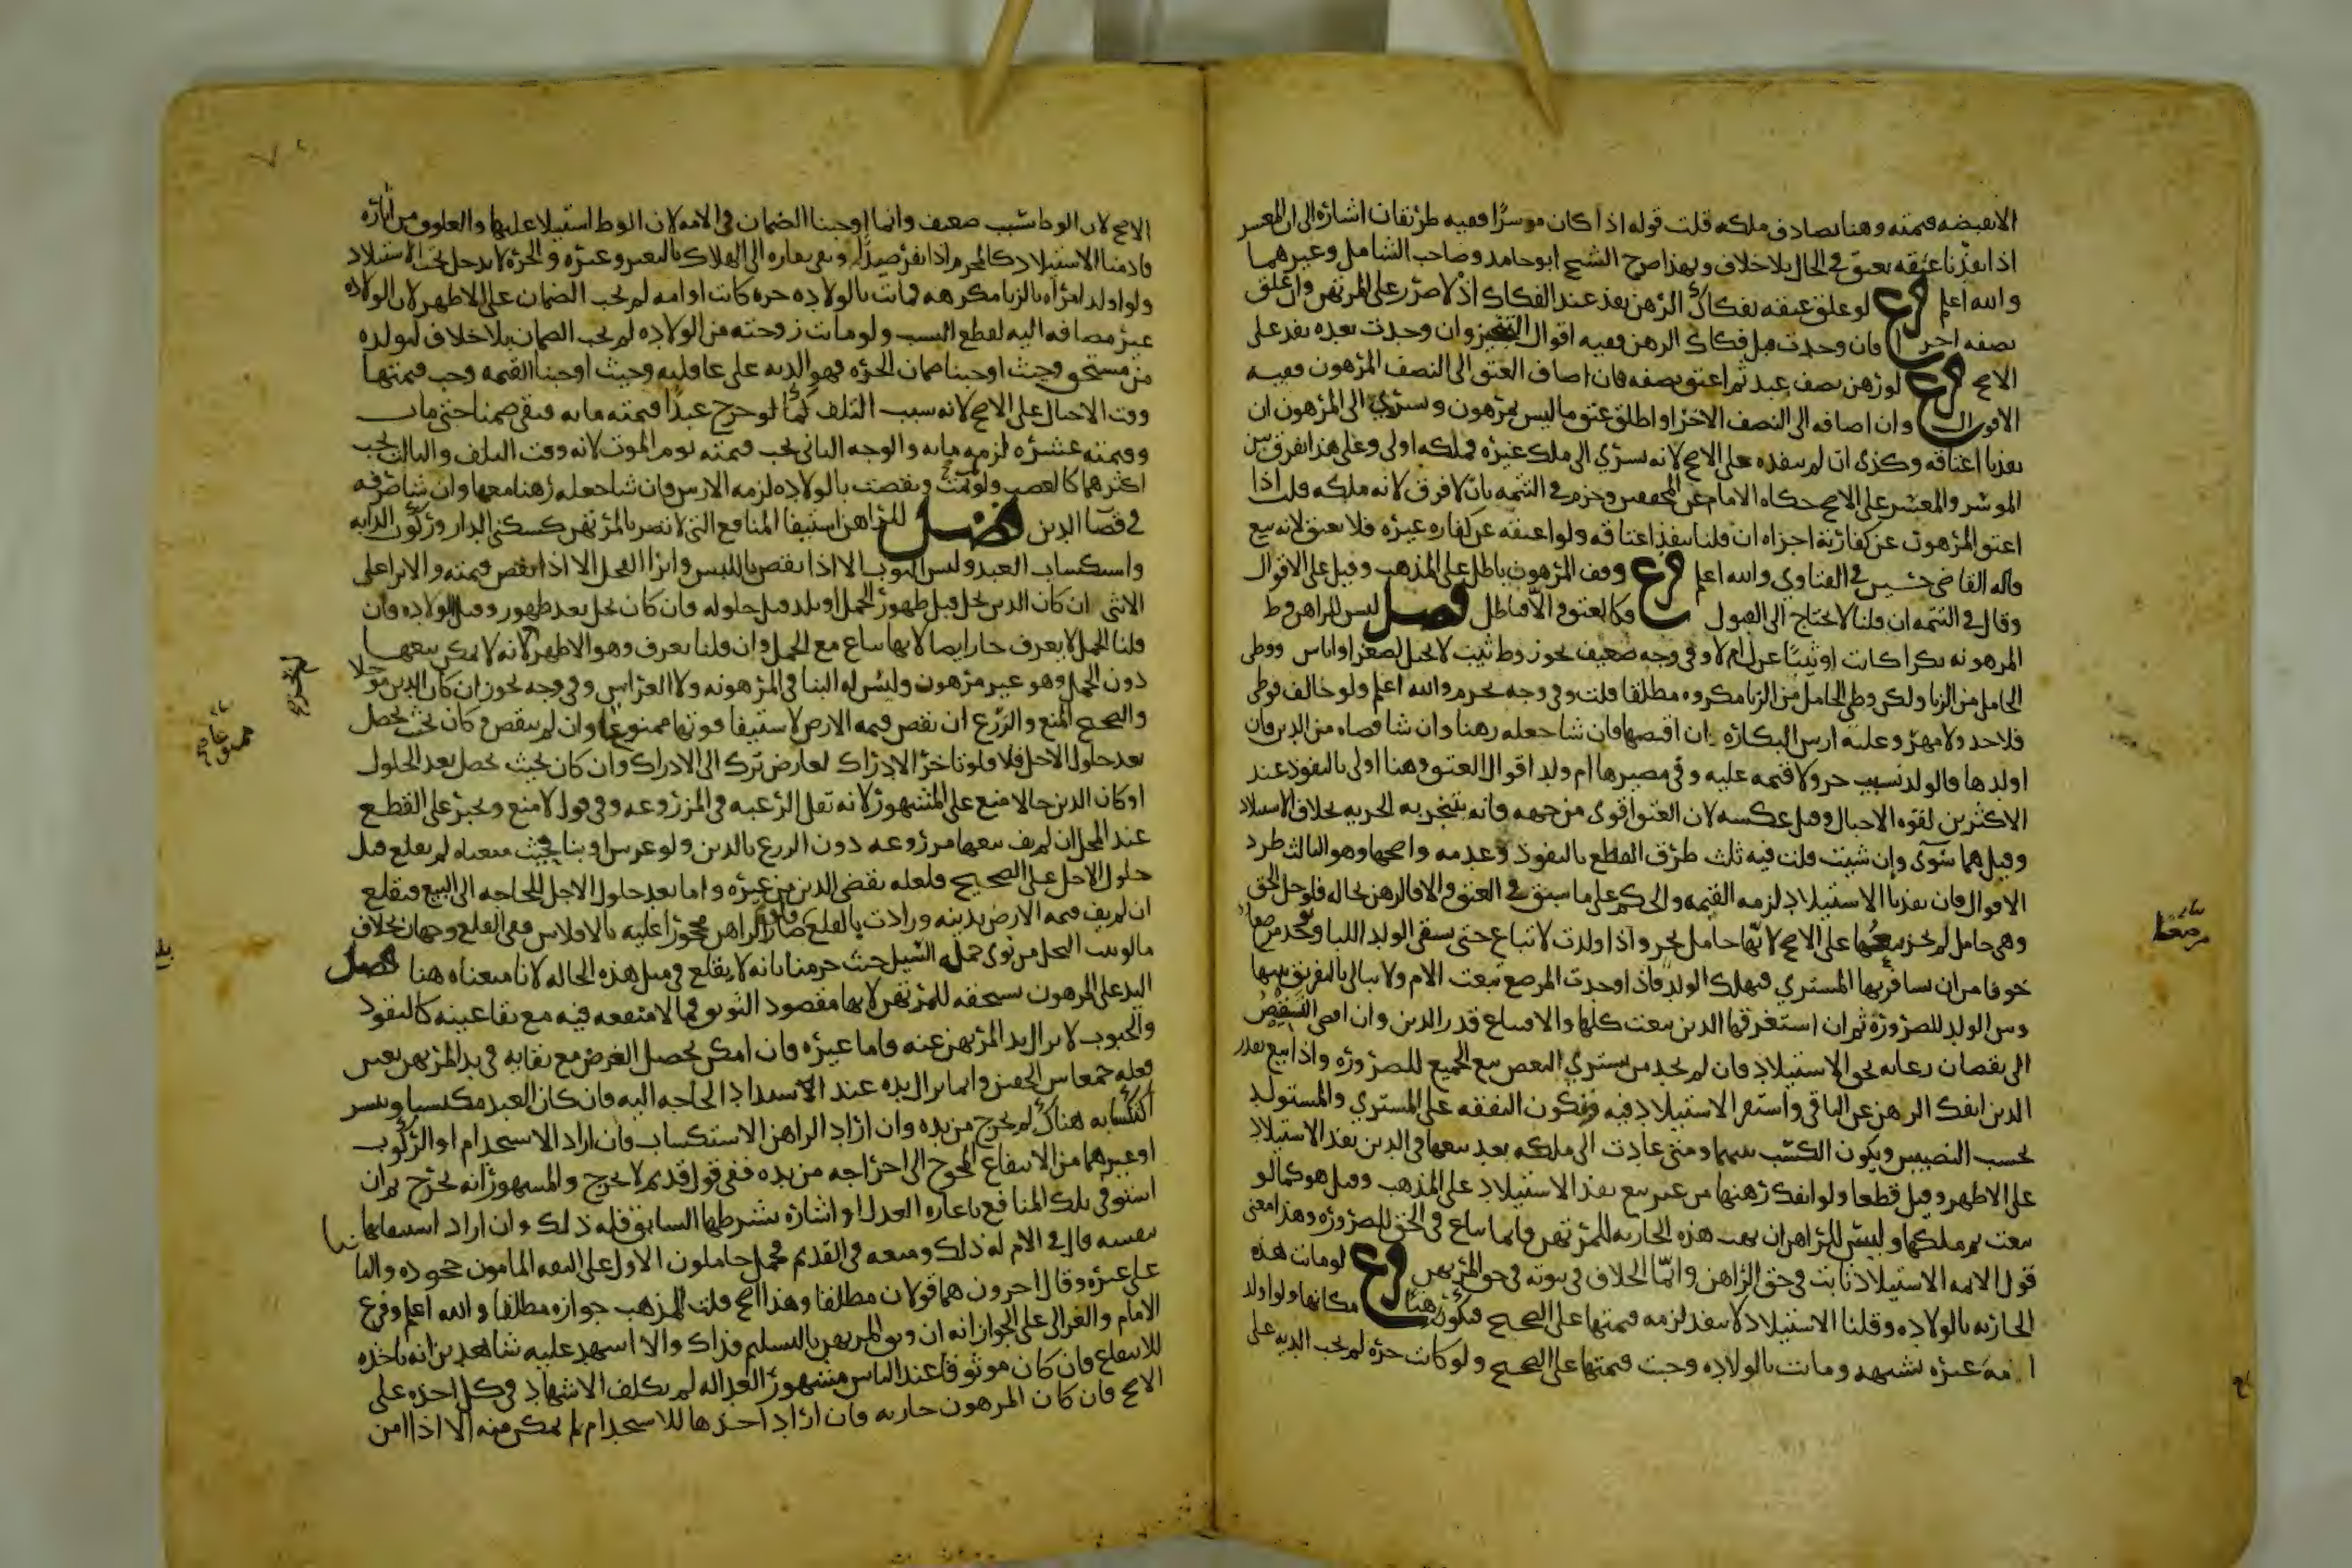 الا نقيضه قيمته وهنا يصادف ملكه قلت قوله اذا كان موسرًا ففيه طريقان اشاره الى ان المعسر
اذا نفذنا عتقه يعتق في الحال بلا خلاف وبهذا صرح الشيخ ابو حامد وصاحب الشامل وغيرهما
والله اعلم فرع لو علق عتقه بفكاك الرهن نفذ عند الفكاك اذ لا ضرر على المرتهن وان علق
بصفه اخرى فان وجدت قبل فكاك الرهن ففيه اقوال التنجيز وان وجدت بعده نفذ على
الاصح فرع لو رهن نصف عبد ثم اعتق نصفه فان اضاف العتق الى النصف المرهون ففيه
الاقوال وان اضافه الى النصف الاخر او اطلق عتق ما ليس بمرهون ويسري الى المرهون ان
نفذنا اعتاقه وكذى ان لم ننفذه على الاصح لانه يسري الى ملك غيره فملكه اولى وعلى هذا يفرق بين
الموسر والمعسر على الاصح حكاه الامام عن المحققين وجزم في التتمه بان لا فرق لانه ملكه قلت اذا
اعتق المرهون عن كفارته اجزاه ان قلنا ينفذ اعتاقه ولو اعتقه عن كفاره غيره فلا يعتق لانه بيع
قاله القاضي حسين في الفتاوي والله اعلم فرع وقف المرهون باطل على المذهب وقيل على الاقوال
وقال في التتمه ان قلنا لا يحتاج الى القبول فكالعتق والا فباطل فصل ليس للراهن وط
المرهونه بكرا كانت او ثيبًا عزل ام لا وفي وجه ضعيف يجوز وط ثيب لا تحبل لصغر او اياس ووطى
الحامل من الزنا ولكن وطى الحامل من الزنا مكروه مطلقا قلت وفي وجه يحرم والله اعلم ولو خالف فوطى
فلا حد ولا مهر وعليه ارش البكاره ان اقتضها فان شا جعله رهنا وان شا قضاه من الدين فان
اولدها فالولد نسيب حر ولا قيمه عليه وفي مصيرها ام ولد اقوال العتق وهنا اولى بالنفوذ عند
الاكثرين لقوه الاحبال وقيل عكسه لان العتق اقوى من جهه فانه تتنجز به الحريه بخلاف الاستيلاد
وقيل هما سوى وان شيت قلت فيه ثلث طرق القطع بالنفوذ وعدمه واصحها وهو الثالث طرد
الاقوال فان نفذنا الاستيلاد لزمه القيمه والحكم على ما سبق في العتق والا فالرهن بحاله فلو حل الحق
وهي حامل لم يجز بيعها على الاصح لانها حامل بحر واذا ولدت لا تباع حتى يسقى الولد اللبا ونجد مرضعا
خوفا من ان يسافر بها المشتري فيهلك الولد فاذا وجدت المرضع بيعت الام ولا يبالى بالتفريق بينها
وبين الولد للضروره ثم ان استغرقها الدين بيعت كلها والا فيباع قدر الدين وان افضى التشقيص
الى نقصان رعايه لحق الاستيلاد فان لم نجد من يشتري البعض بيع الجميع للضروره واذا بيع بقدر
الدين انفك الرهن عن الباقي واستقر الاستيلاد فيه وتكون النفقه على المشتري والمستولد
بحسب النصيبين ويكون الكسب بينهما ومتى عادت الى ملكه بعد بيعها في الدين نفذ الاستيلاد
على الاظهر وقيل قطعا ولو انفك رهنها من غير بيع نفذ الاستيلاد على المذهب وقيل هو كما لو
بيعت ثم ملكها وليس للراهن ان يهب هذه الجاريه للمرتهن وانما تباع في الحق للضروره وهذا معنى
قول الايمه الاستيلاد ثابت في حق الراهن وانما الخلاف في ثبوته في حق المرتهن فرع لو ماتت هذه
الجاريه بالولاده وقلنا الاستيلاد لا ينفذ لزمه قيمتها على الصحيح فيكون رهنا مكانها ولو اولد
امة غيره بشبهه وماتت بالولاده وجبت قيمتها على الصحيح ولو كانت حره لم تجب الديه على
مرضعا
الاصح لان الوط سبب ضعيف وانما اوجبنا الضمان في الامه لان الوط استيلا عليها والعلوق من اثاره
فادمنا الاستيلا كالمحرم اذا نفر صيدًا وبقي نفاره الى الهلاك بالتعثر وغيره والحره لا تدخل تحت الاستيلا
ولو اولد امراه بالزنا مكرهه فماتت بالولاده حره كانت او امه لم يجب الضمان على الاظهر لان الولاده
غير مضافه اليه لقطع النسب ولو ماتت زوجته من الولاده لم يجب الضمان بلا خلاف لتولده
من مستحق وحيث اوجبنا ضمان الحره فهو الديه على عاقلته وحيث اوجبنا القيمه وجب قيمتها
وقت الاحبال على الاصح لانه سبب التلف كما لو جرح عبدًا قيمته مايه فبقي ضمنا حتى مات
وقيمته عشره لزمه مايه والوجه الثاني تجب قيمته يوم الموت لانه وقت التلف والثالث يجب
اكثرهما كالغصب ولو لم تمت ونقصت بالولاده لزمه الارش فان شا جعله رهنا معها وان شا صرفه
في قضا الدين فصل للراهن استيفا المنافع التي لا تضر بالمرتهن كسكنى الدار وركوب الدابه
واستكساب العبد ولبس الثوب الا اذا نقص باللبس وانزا الفحل الا اذا نقص قيمته والانزا على
الانثى ان كان الدين يحل قبل ظهور الحمل او تلد قبل حلوله فان كان يحل بعد ظهور وقبل الولاده فان
قلنا الحمل لا يعرف جاز ايضا لانها تباع مع الحمل وان قلنا يعرف وهو الاظهر لانه لا يمكن بيعها
دون الحمل وهو غير مرهون وليس له البنا في المرهونه ولا الغراس وفي وجه يجوز ان كان الدين موجلا
والصحيح المنع والزرع ان نقص قيمه الارض لاستيفا قوتها ممنوع وان لم ينقص وكان بحيث يحصل
بعد حلول الاجل فلا فلو تاخر الادراك لعارض ترك الى الادراك وان كان بحيث يحصل بعد الحلول
او كان الدين حالا منع على المشهور لانه تقل الرغبه في المزروعه وفي قول لا منع ويجبر على القطع
عند المحل ان لم يف بيعها مزروعه دون الزرع بالدين ولو غرس او بنا بحيث منعناه لم يقلع قبل
حلول الاجل على الصحيح فلعله يقضي الدين من غيره واما بعد حلول الاجل للحاجه الى البيع فيقلع
ان لم يف قيمه الارض بدينه وزادت بالقلع فلو صار الراهن محجورا عليه بالافلاس ففي القلع وجهان بخلاف
ما لو نبت النخل من نوى حمله السيل حيث جزمنا بانه لا يقلع في مثل هذه الحاله لانا منعناه هنا فصل
اليد على المرهون مستحقه للمرتهن لانها مقصود التوثق فما لا منفعه فيه مع بقا عينه كالنقود
والحبوب لا تزال يد المرتهن عنه واما غيره فان امكن تحصيل الغرض مع بقايه في يد المرتهن تعين
فعله جمعا بين الحقين وانما تزال يده عند اشتداد الحاجه اليه فان كان العبد مكتسبا وتيسر
اكتسابه هناك لم يخرج من يده وان اراد الراهن الاستكساب فان اراد الاستخدام او الركوب
او غيرهما من الانتفاع المحوج الى اخراجه من يده ففي قول قديم لا يخرج والمشهور انه يخرج ثم ان
استوفى تلك المنافع باعاره العدل او اشاره بشرطها السابق فله ذلك وان اراد استيفاها
بنفسه قال في الام له ذلك ومنعه في القديم فحمل حاملون الاول على الثقه المامون جحوده والثاني
على غيره وقال اخرون هما قولان مطلقا وهذا اصح قلت المذهب جوازه مطلقا والله اعلم وفرع
الامام والغزالى على الجواز انه ان وثق المرتهن بالتسليم فذاك والا اشهد عليه شاهدين انه ياخذه
للانتفاع فان كان موثوقا عند الناس مشهور العداله لم يكلف الاشهاد في كل اخذه على
الاصح فان كان المرهون جاريه فان اراد اخذها للاستخدام لم يمكن منه الا اذا امن